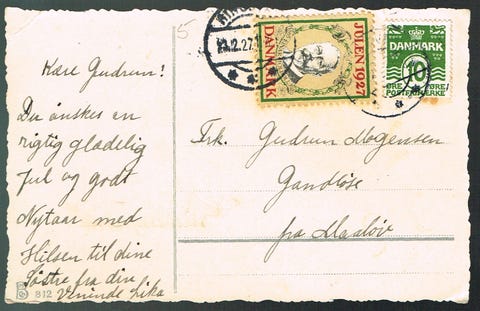 5
23.2.27
JULEN 1927
DANMARK
DANMARK
10
ØRE ØRE
POSTFRIMÆRKE
Kære Gudrun!
Du ønskes en
rigtig glædelig
Jul og godt
Nytaar med
Hilsen til dine
Søstre fra din
Veninde
Frk. Gudrun Mogensen
Gandløse
fra Maaløv
812